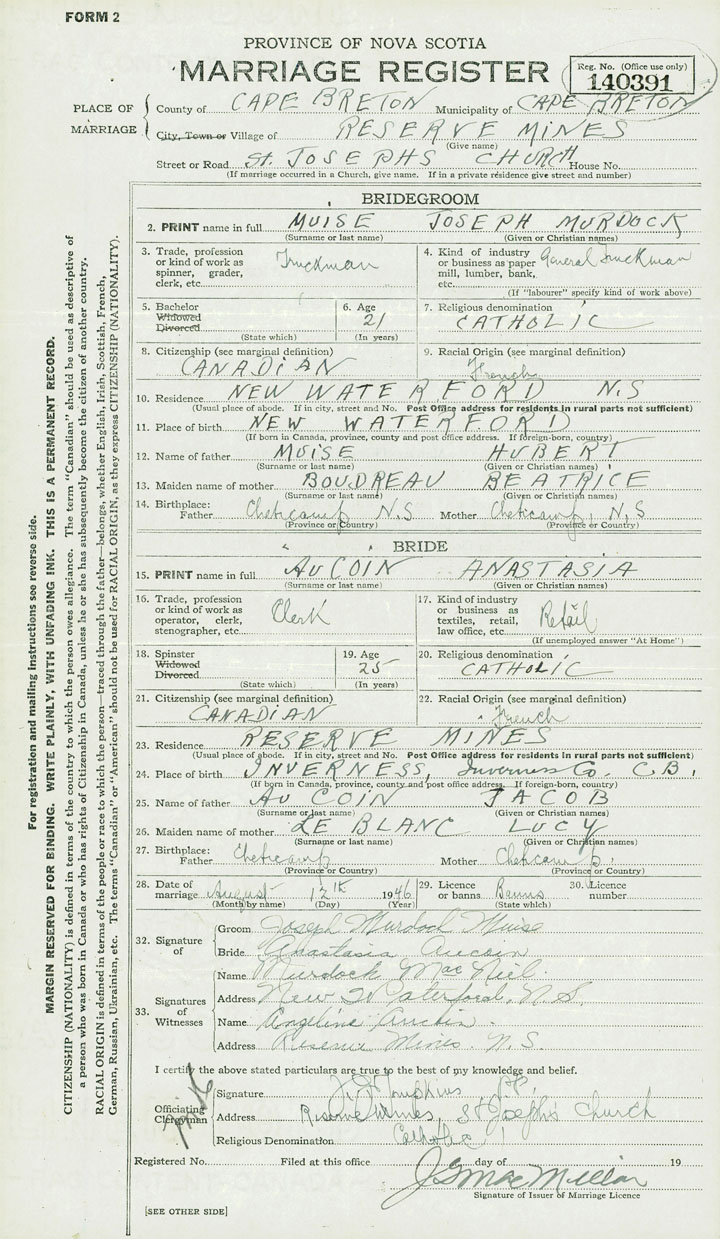 FORM 2
PROVINCE OF NOVA SCOTIA
MARRIAGE REGISTER
Reg. No. (Office use only)
140391
PLACE OF MARRIAGE
County of CAPE BRETON Municipality of CAPE BRETON
City, Town or Village of RESERVE MINES
(Give name)
Street or Road St. JOSEPHS CHURCH House No.
(If marriage occurred in a Church, give name. If in a private residence give street and number)
BRIDEGROOM
2. PRINT name in full MUISE JOSEPH MURDOCK
(Surname or last name) (Given or Christian names)
3. Trade, profession or kind of work as spinner, grader, clerk, etc. Truckman
4. Kind of industry or business as paper mill, lumber, bank, etc. General Truckman
(If "labourer" specify kind of work above)
5. Bachelor Widowed Divorced (State which)
6. Age 21 (In years)
7. Religious denomination CATHOLIC
8. Citizenship (see marginal definition) CANADIAN
9. Racial Origin (see marginal definition) French
10. Residence NEW WATERFORD N.S
(Usual place of abode. If in city, street and No. Post Office address for residents in rural parts not sufficient)
11. Place of birth NEW WATERFORD
(If born in Canada, province, county and post office address. If foreign-born, country)
12. Name of father MUISE HUBERT
(Surname or last name) (Given or Christian names)
13. Maiden name of mother BOUDREAU BEATRICE
(Surname or last name) (Given or Christian names)
14. Birthplace: Father Cheticamp N.S Mother Cheticamp, N.S
(Province or Country) (Province or Country)
BRIDE
15. PRINT name in full AUCOIN ANASTASIA
(Surname or last name) (Given or Christian names)
16. Trade, profession or kind of work as operator, clerk, stenographer, etc. Clerk
17. Kind of industry or business as textiles, retail, law office, etc. Retail
(If unemployed answer "At Home")
18. Spinster Widowed Divorced (State which)
19. Age 25 (In years)
20. Religious denomination CATHOLIC
21. Citizenship (see marginal definition) CANADIAN
22. Racial Origin (see marginal definition) French
23. Residence RESERVE MINES
(Usual place of abode. If in city, street and No. Post Office address for residents in rural parts not sufficient)
24. Place of birth INVERNESS, Inverness Co. C.B.
(If born in Canada, province, county and post office address. If foreign-born, country)
25. Name of father AU COIN JACOB
(Surname or last name) (Given or Christian names)
26. Maiden name of mother LE BLANC LUCY
(Surname or last name) (Given or Christian names)
27. Birthplace: Father Cheticamp Mother Cheticamp.
(Province or Country) (Province or Country)
28. Date of marriage August 12th 1946
(Month by name) (Day) (Year)
29. Licence or banns Banns (State which)
30. Licence number
32. Signature of
Groom Joseph Murdoch Muise
Bride Anastasia Aucoin
33. Signatures of Witnesses
Name Murdock MacNeil.
Address New Waterford, N.S.
Name Angeline Aucoin.
Address Reserve Mines. N.S.
I certify the above stated particulars are true to the best of my knowledge and belief.
Officiating Clergyman
Signature J.J. Tompkins P.P.
Address Reserve Mines, St Joseph's Church
Religious Denomination Catholic
Registered No. Filed at this office day of 19
J.G. MacMillan
Signature of Issuer of Marriage Licence
[SEE OTHER SIDE]
For registration and mailing instructions see reverse side.
MARGIN RESERVED FOR BINDING. WRITE PLAINLY, WITH UNFADING INK. THIS IS A PERMANENT RECORD.
CITIZENSHIP (NATIONALITY) is defined in terms of the country to which the person owes allegiance. The term "Canadian" should be used as descriptive of
a person who was born in Canada or who has rights of Citizenship in Canada, unless he or she has subsequently become the citizen of another country.
RACIAL ORIGIN is defined in terms of the people or race to which the person—traced through the father—belongs, whether English, Irish, Scottish, French,
German, Russian, Ukrainian, etc. The terms "Canadian" or "American" should not be used for RACIAL ORIGIN, as they express CITIZENSHIP (NATIONALITY).